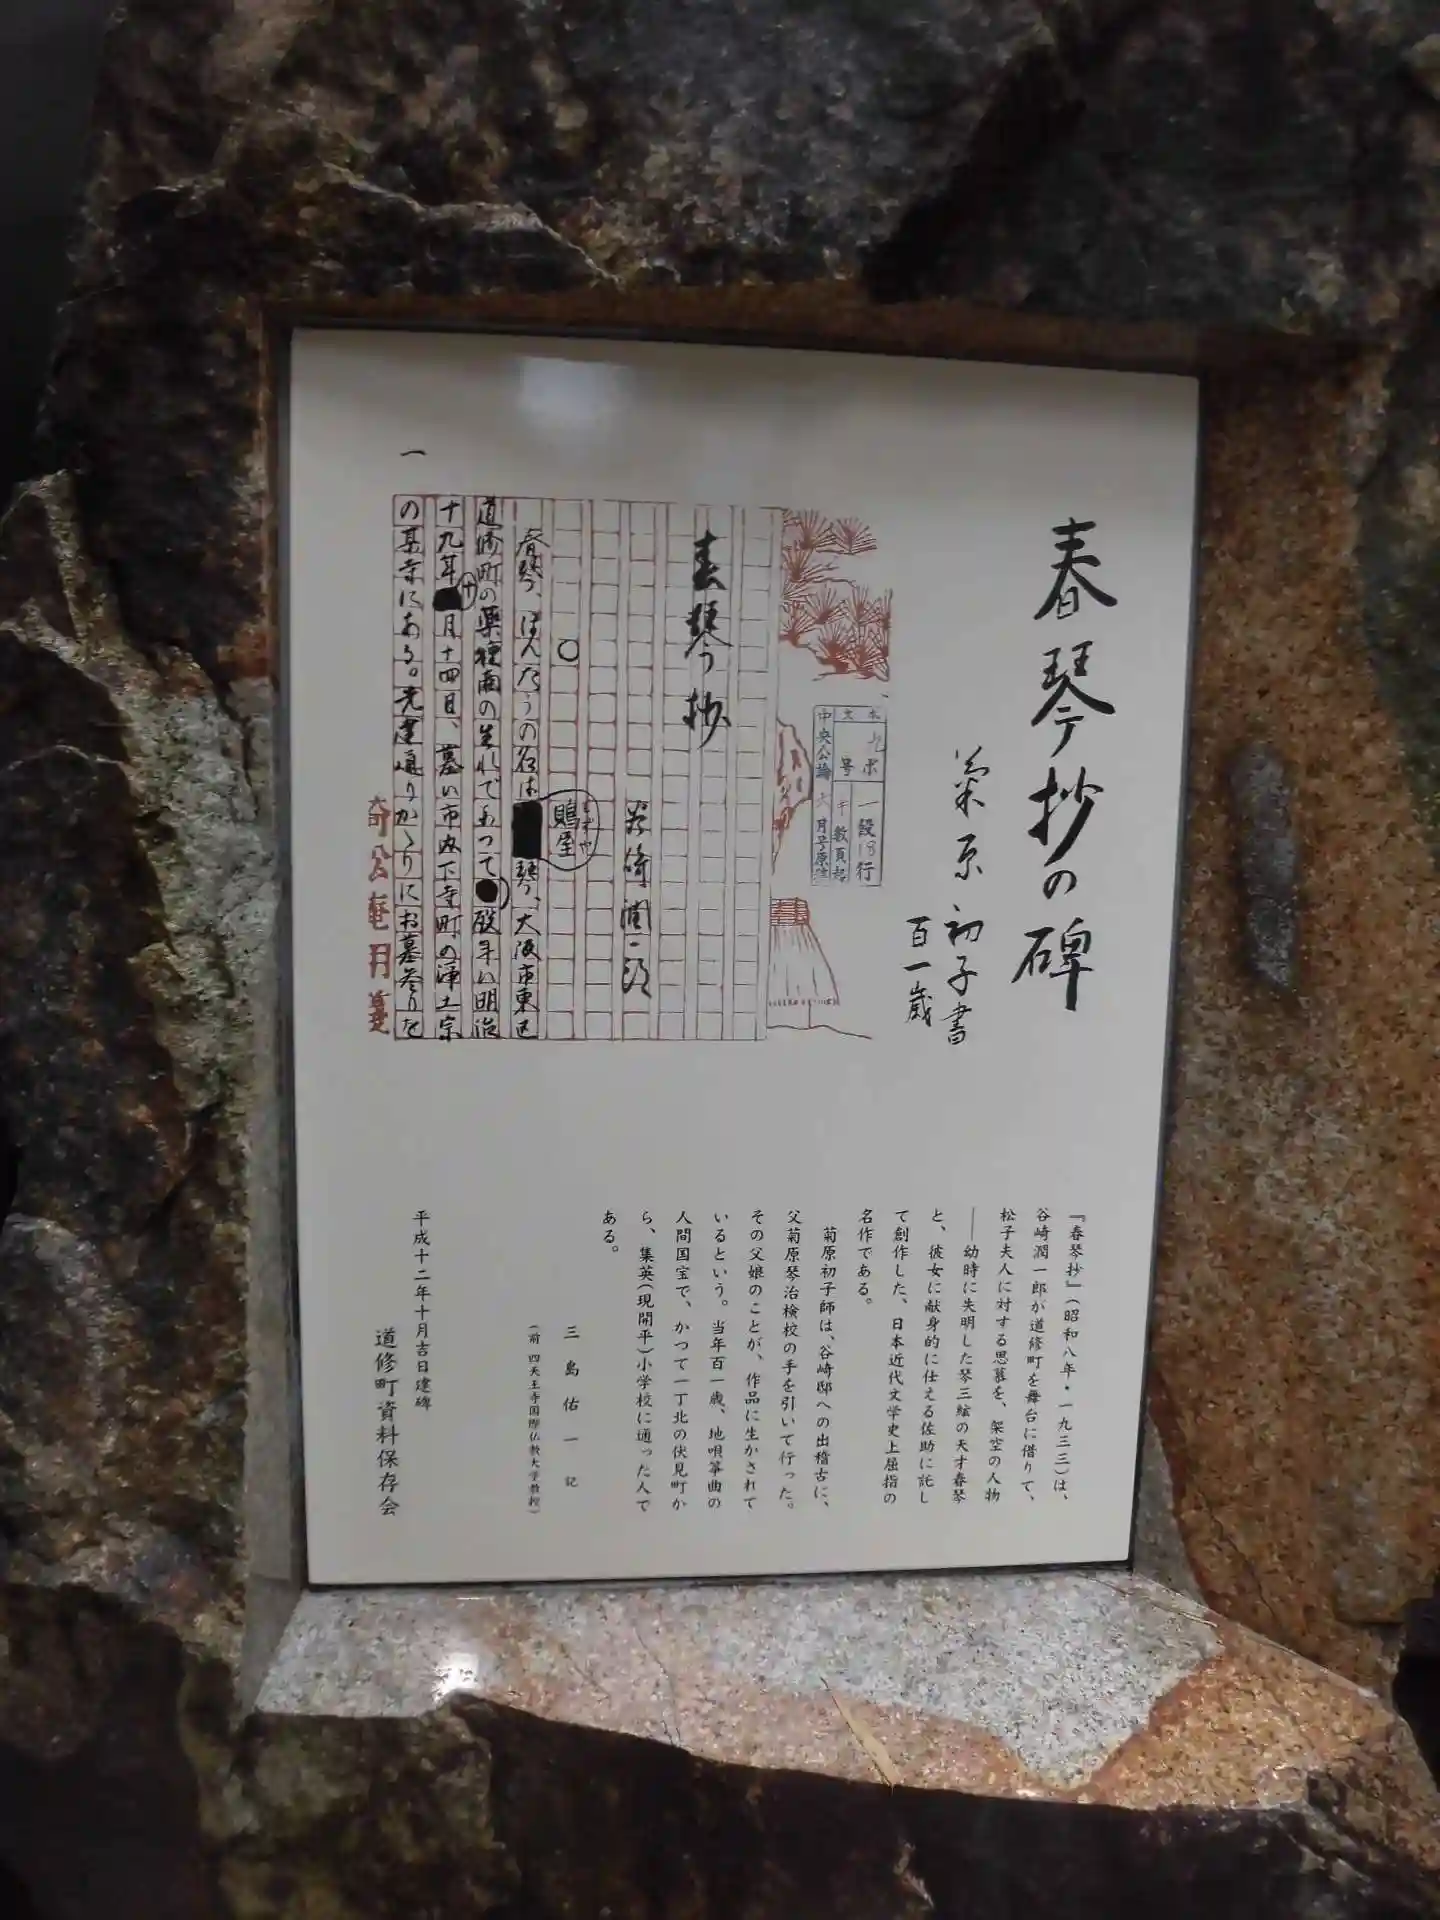 春琴抄の碑
菊原初子書
百一歳
水
文
九ポ
号
一段18行
中央公論
春琴抄
谷崎潤一郎
鵙屋
春琴、ほんたうの名は
琴、大阪市東区
道修町の薬種商の生れで
歿年は明治
十九年
十
月十四日、墓は市内下寺町の浄土宗
の某寺にある。先達通りかゝりにお墓参りを
一
『春琴抄』(昭和八年・一九三三)は、
谷崎潤一郎が道修町を舞台に借りて、
松子夫人に対する思慕を、架空の人物
――幼時に失明した琴三絃の天才春琴
と、彼女に献身的に仕える佐助に託し
て創作した、日本近代文学史上屈指の
名作である。
菊原初子師は、谷崎邸への出稽古に、
父菊原琴治検校の手を引いて行った。
その父娘のことが、作品に生かされて
いるという。当年百一歳、地唄箏曲の
人間国宝で、かつて一丁北の伏見町か
ら、集英(現開平)小学校に通った人で
ある。
三島佑一 記
(前 四天王寺国際仏教大学教授)
平成十二年十月吉日建碑
道修町資料保存会